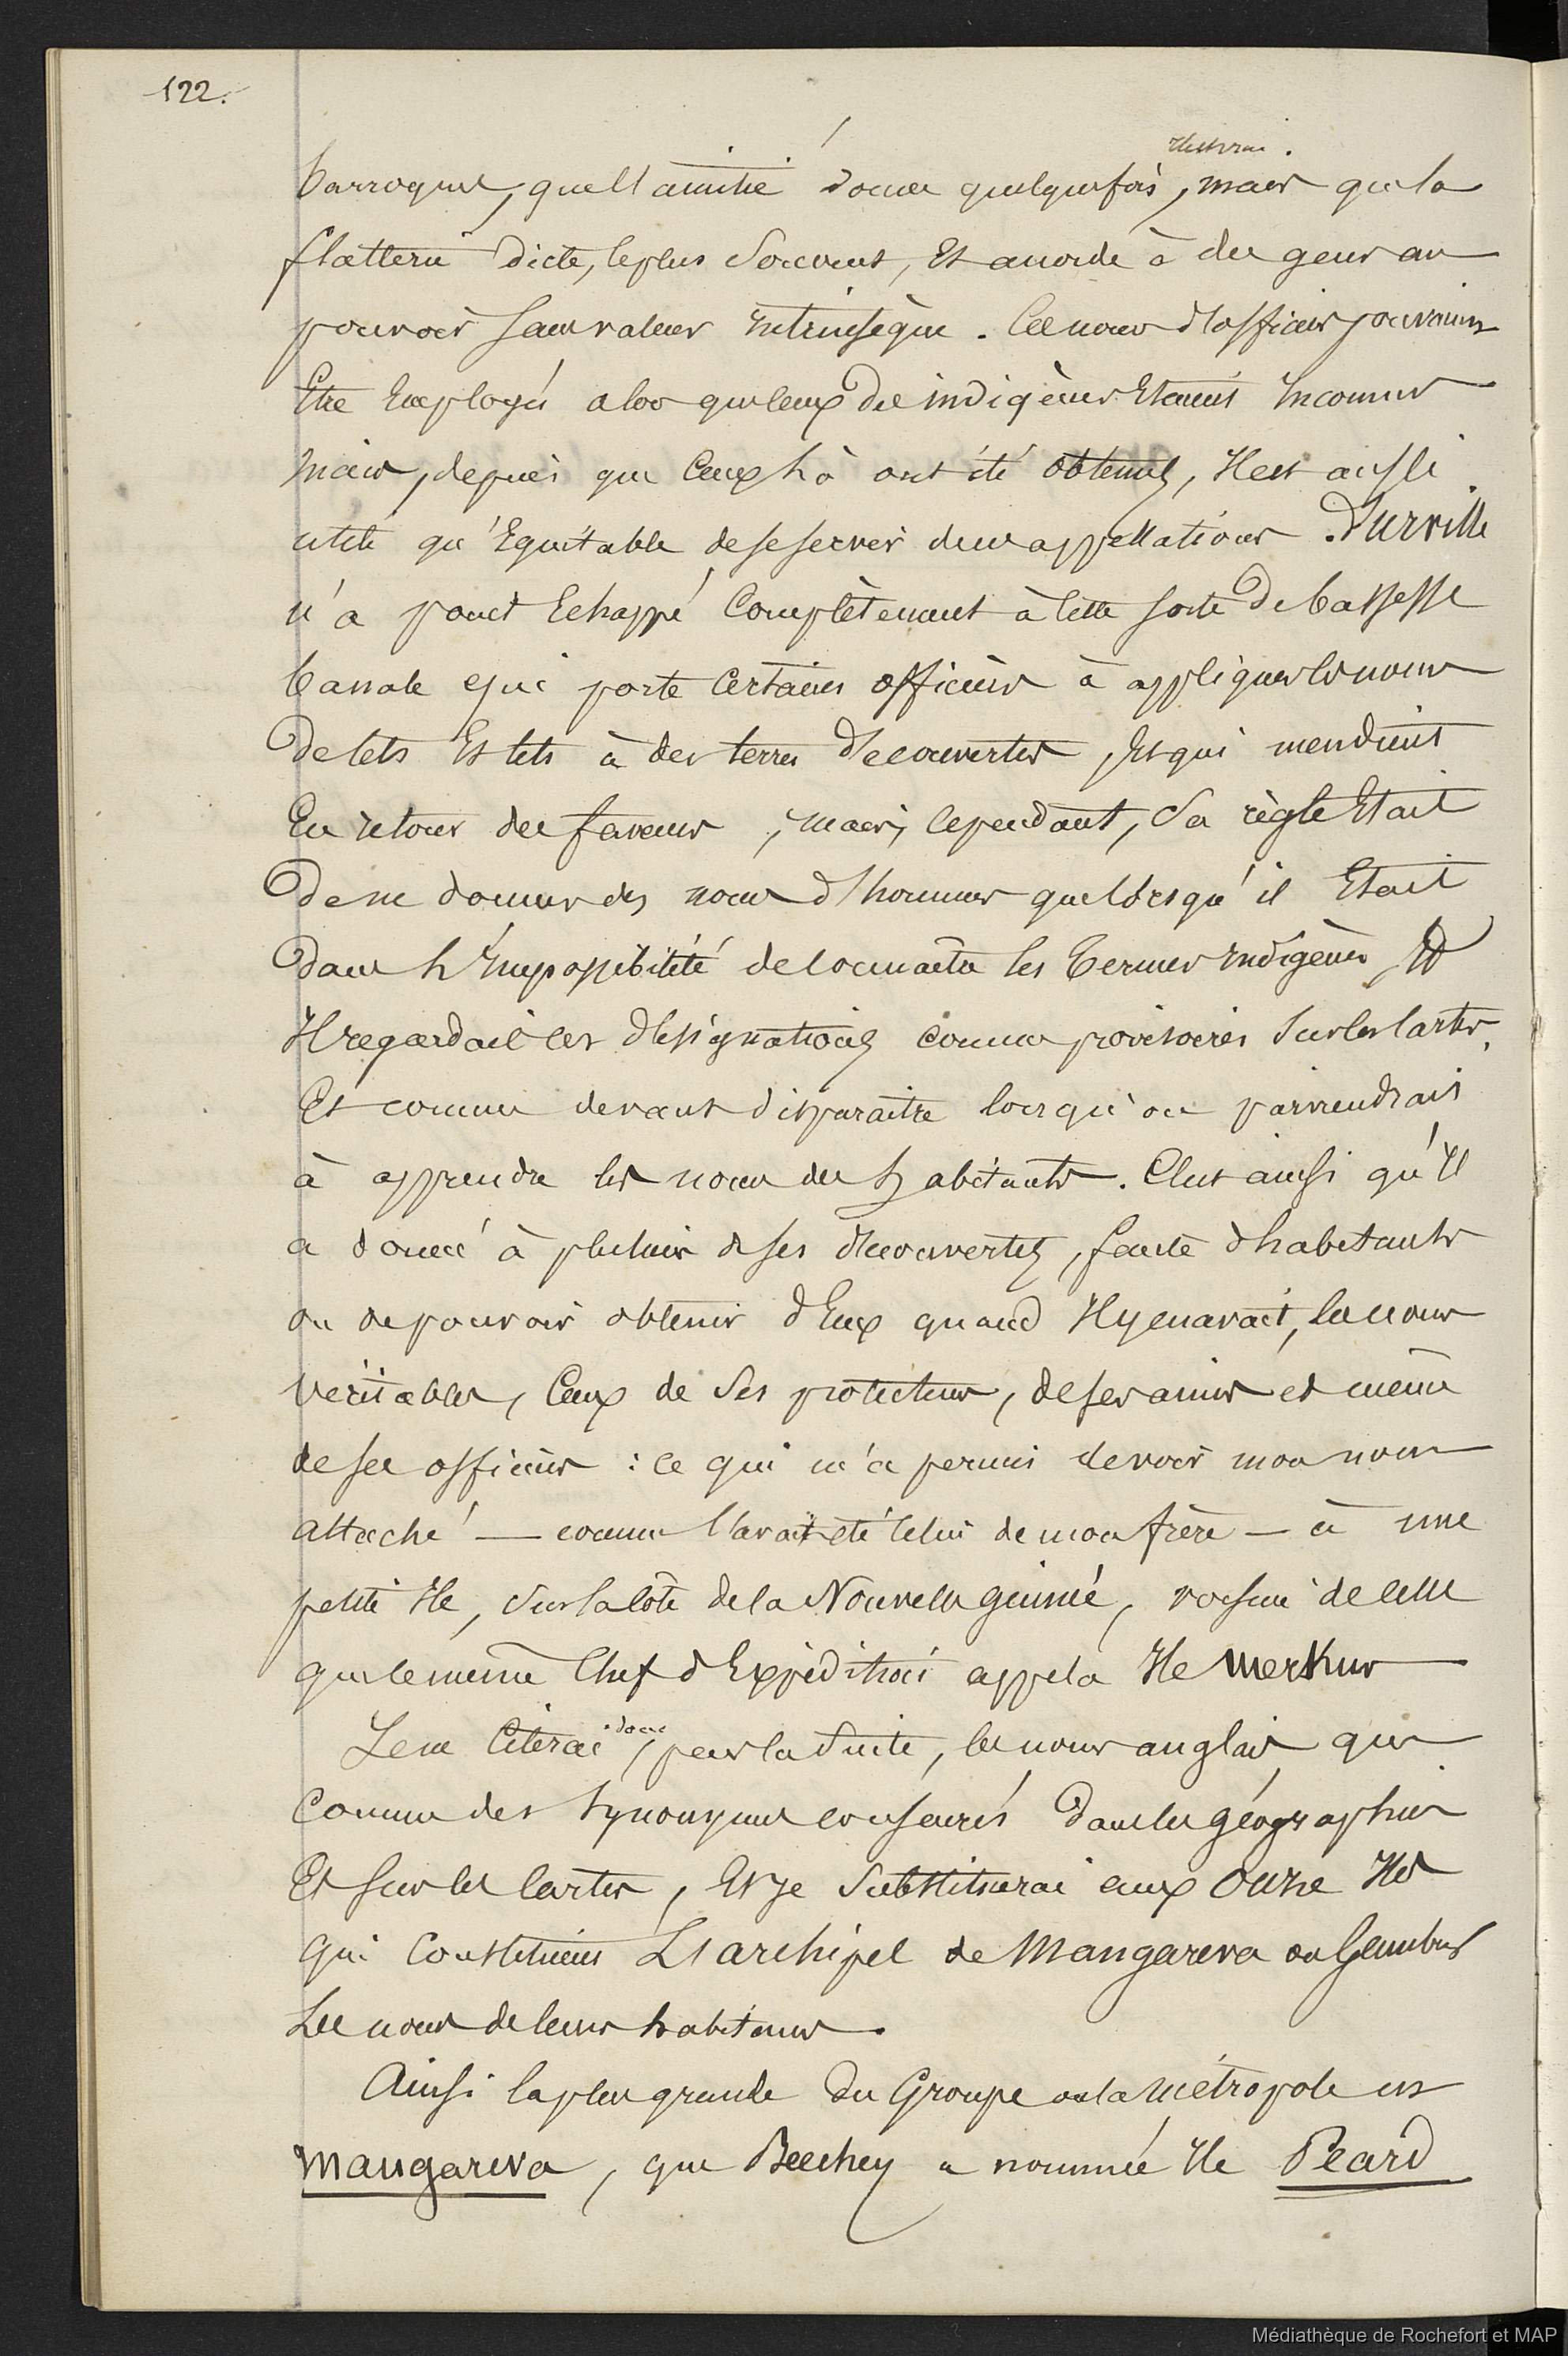 122.
Il est vrai.
barroques, que l'amitié donne quelquefois, mais que la
flatterie dicte, le plus souvent, Et accorde à des gens au
pouvoir sans valeur intrinsèque. Ces noms d'officiers pouvaient
Etre Employés alors que ceux des indigènes Etaient Inconnus
mais, depuis que Ceux là ont été obtenus, Il est aussi
utile qu'Equitable de se servir de ces appellations. D'urville
n'a point Echappé Complètement à cette sorte de bassesse
banale qui porte Certains officiers à appliquer les noms
de tels Et tels à des terres découvertes, Et qui mendient
En retour des faveurs, mais, cependant, Sa règle Etait
De ne donner des noms d'hommes que lorsqu'il Etait
Dans l'Impossibilité de connaître les termes indigènes, Et
Il regardait ces désignations comme provisoires Sur les Cartes,
Et comme devant disparaître lorsqu'on parviendrait
à apprendre les noms des habitants. C'est ainsi qu'Il
a donné à plusieurs de ses découvertes, faute d'habitants
ou de pouvoir obtenir d'Eux quand Il y en avait, les noms
véritables, Ceux de Ses protecteurs, de ses amis et même
de ses officiers : ce qui m'a permis de voir mon nom
attaché — comme l'avait été celui de mon frère — à une
petite Ile, Sur la côte de la Nouvelle guinée, voisine de celle
que le même Chef d'Expédition appela Ile Merkus
Je ne Citerai donc, par la Suite, les noms anglais que
Comme des Synonymes consacrés dans les géographies
Et sur les Cartes, Et Je Substituerai aux Onze Iles
qui Constituent L'archipel de Mangareva ou Gambier
Les noms de leurs habitans.
Ainsi la plus grande Du Groupe ou la métropole est
Mangareva, que Beechey a nommée Ile Peard
Médiathèque de Rochefort et MAP